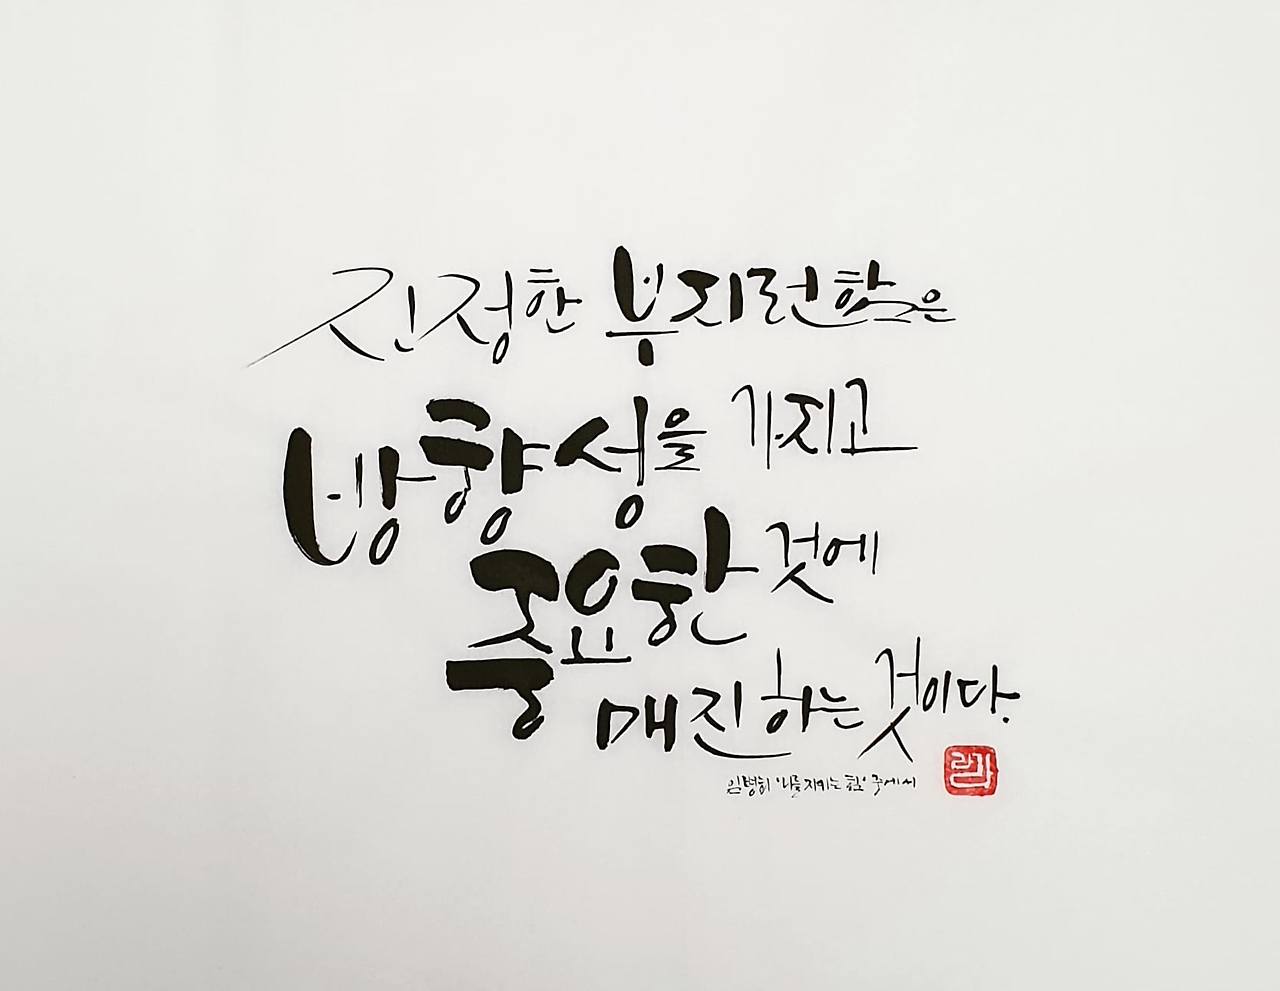 진정한 부지런함은
방향성을 가지고
중요한 것에
매진하는 것이다.
임병희 '나를 지키는 힘' 중에서